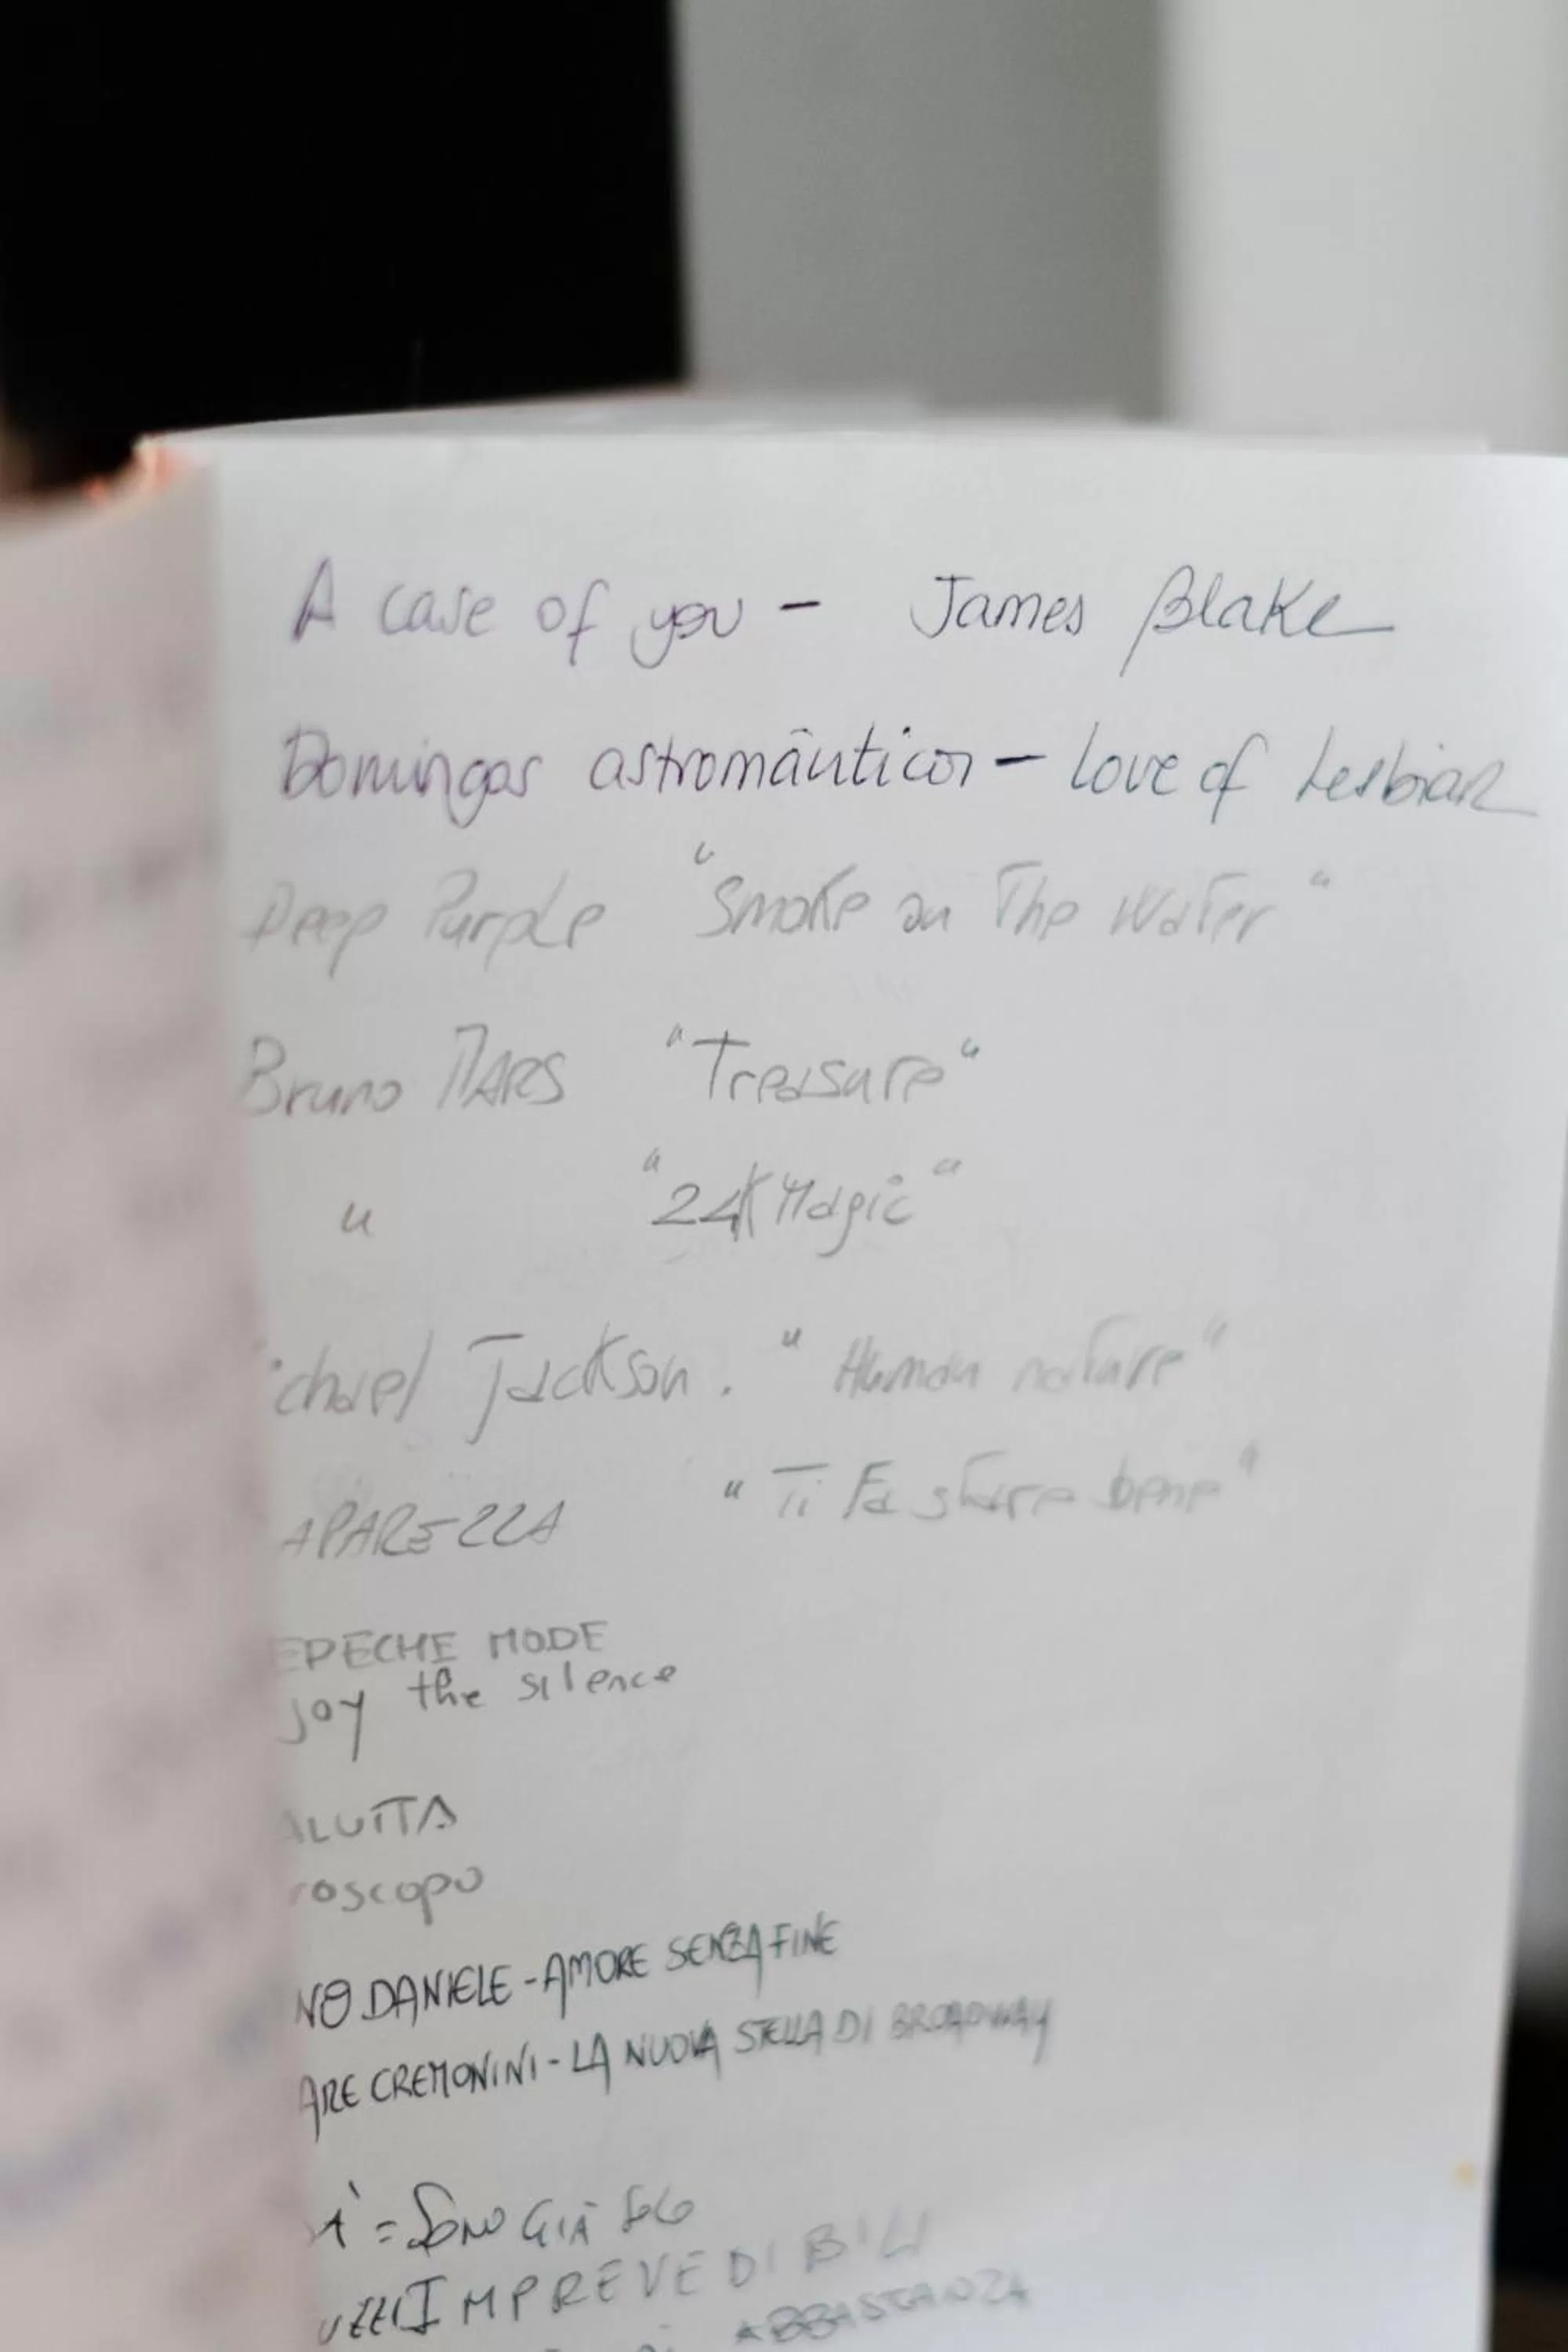 A case of you - James Blake
Domingos astromânticos - Love of Lesbian
Deep Purple "Smoke on The Water"
Bruno MARS "Treasure"
" "24K Magic"
ichael Jackson. "Human nature"
APAREZZA "Ti Fa stare bene"
EPECHE MODE
joy the silence
ALUTTA
roscopo
NO DANIELE - AMORE SENZA FINE
ARE CREMONINI - LA NUOVA STELLA DI BROADWAY
À = SONO GIÀ SOLO
IMPREVEDIBILI
ABBASTANZA